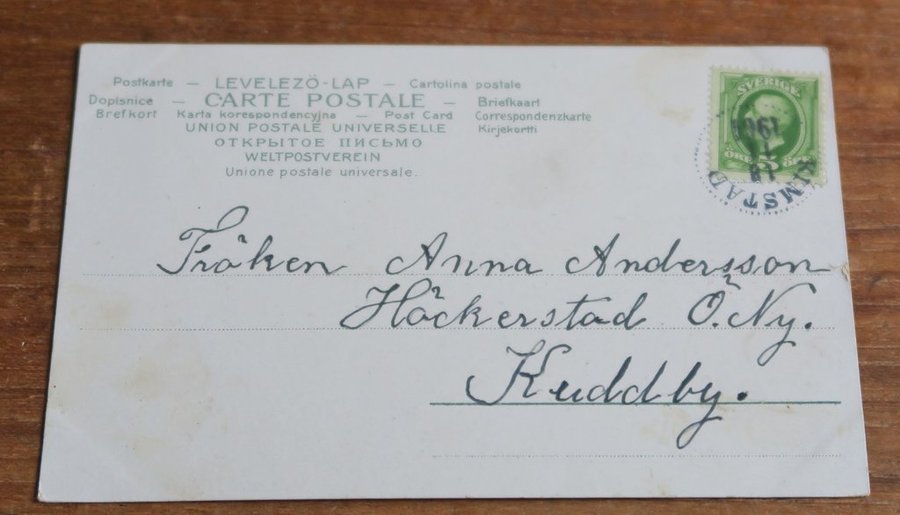 Postkarte — LEVELEZŐ-LAP — Cartolina postale
Dopisnice — CARTE POSTALE — Briefkaart
Brefkort Karta korespondencyjna — Post Card Correspondenzkarte
UNION POSTALE UNIVERSELLE Kirjekortti
ОТКРЫТОЕ ПИСЬМО
WELTPOSTVEREIN
Unione postale universale.
SVERIGE
5
KIMSTAD
18
11
Fröken Anna Andersson
Häckerstad Ö. Ny.
Kuddby.